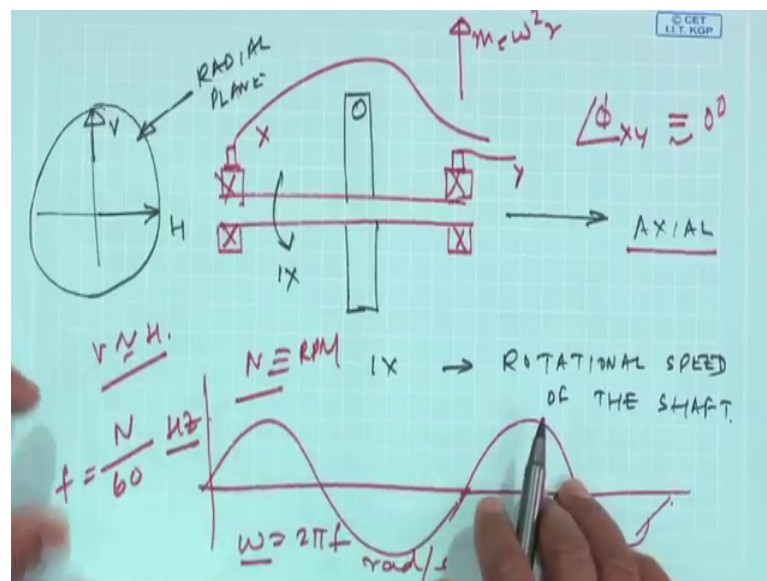 © CET
I.I.T. KGP
RADIAL
PLANE
V
H
X
O
m_c ω² r
∠ϕ_xy ≅ 0°
X
X
y
X
X
1X
AXIAL
V ≅ H.
N ≡ RPM
1X → ROTATIONAL SPEED
OF THE SHAFT.
f = N/60 HZ
ω = 2πf
rad/s